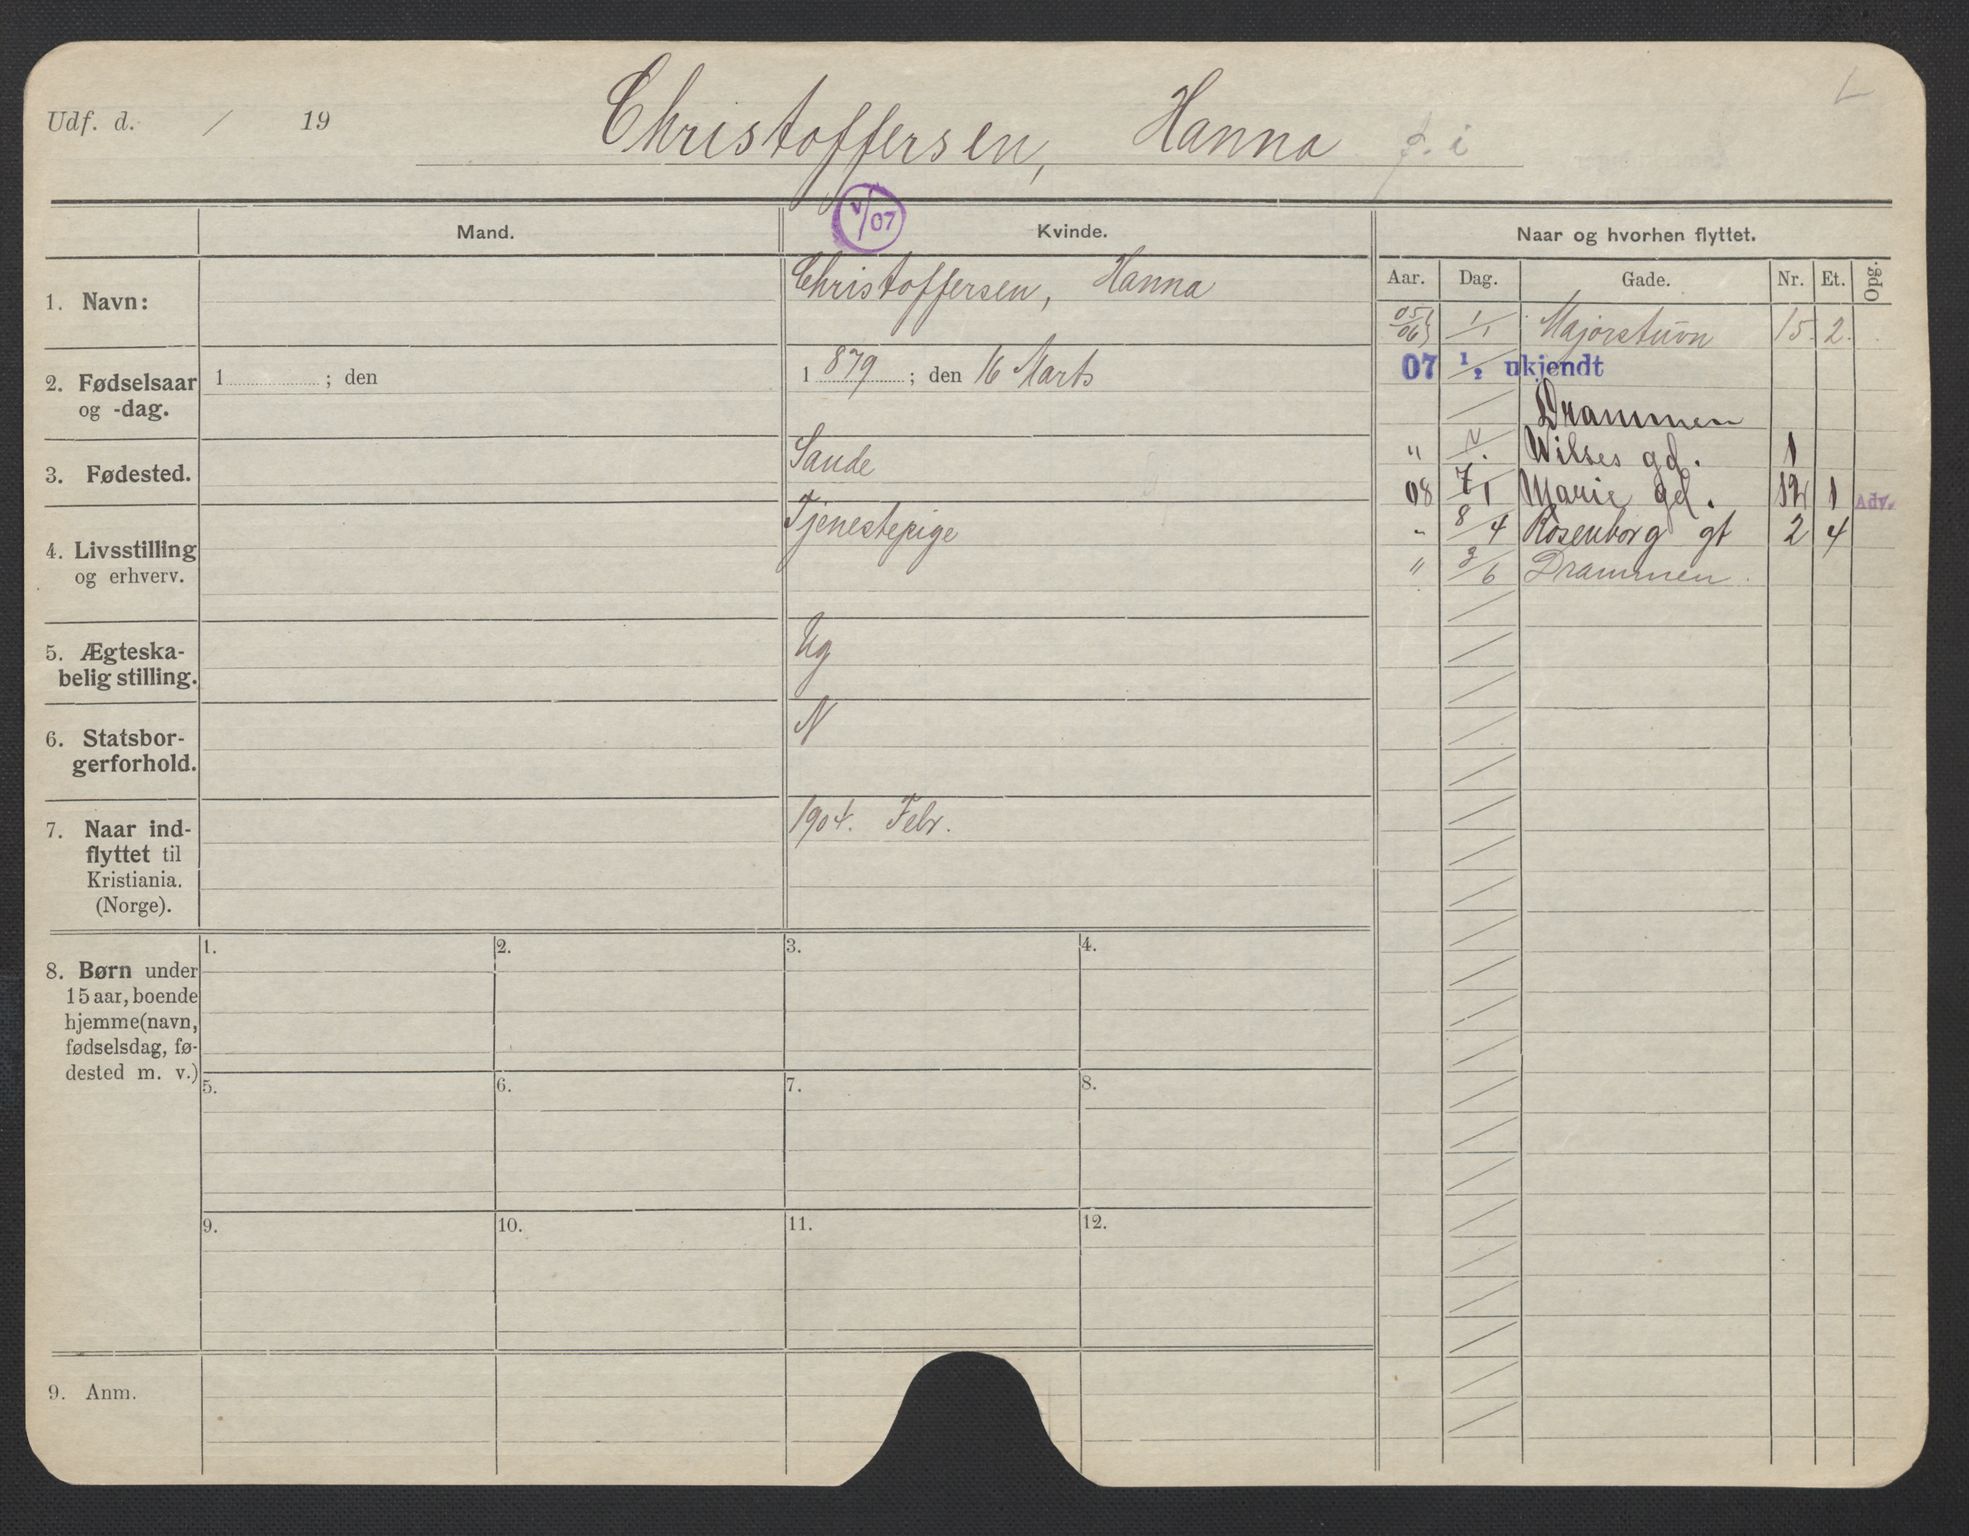 Udf. d. / 19
Christoffersen, Hanna
V/07
Mand.
Kvinde.
Naar og hvorhen flyttet.
Aar. Dag. Gade. Nr. Et. Opg.
1. Navn:
Christoffersen, Hanna
2. Fødselsaar og -dag.
1 ; den
1 879 ; den 16 Marts
3. Fødested.
Sande
4. Livsstilling
og erhverv.
Tjenestepige
5. Ægteska-
belig stilling.
Ug
6. Statsbor-
gerforhold.
N
7. Naar ind-
flyttet til
Kristiania.
(Norge).
1904. Febr.
8. Børn under
15 aar, boende
hjemme (navn,
fødselsdag, fø-
dested m. v.)
1. 2. 3. 4.
5. 6. 7. 8.
9. 10. 11. 12.
9. Anm.
05/06 1/1 Majorstuvn 15. 2.
07 1/2 ukjendt
Drammen
" Wilses gd. 1
08 7/1 Marie gd. 12 1 Adv.
" 8/4 Rosenborg gt 2 4
" 3/6 Drammen.